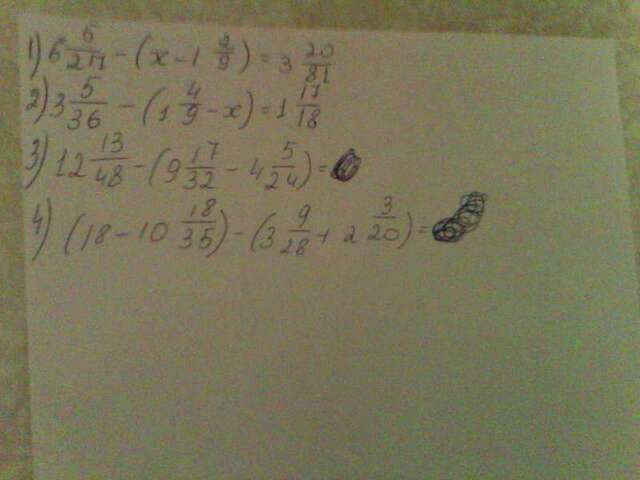 1) 6 5/27 - (x - 1 2/9) = 3 20/81
2) 3 5/36 - (1 4/9 - x) = 1 17/18
3) 12 13/48 - (9 17/32 - 4 5/24) =
4) (18 - 10 18/35) - (3 9/28 + 2 3/20) =